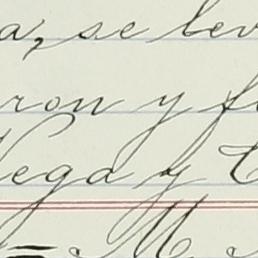 a, se lev
ron y f
Vega y C
M